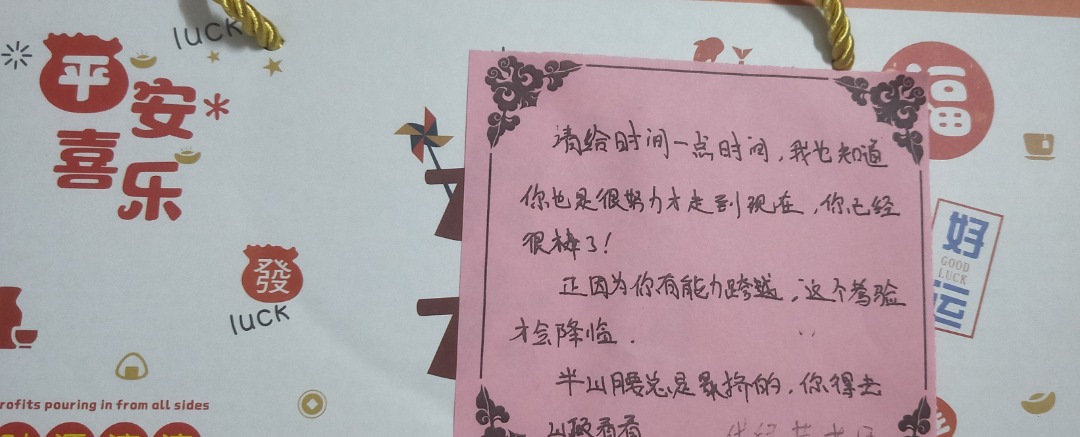 luck
平安
喜乐
發
luck
rofits pouring in from all sides
福
好运
GOOD
LUCK
请给时间一点时间，我也知道
你也是很努力才走到现在，你已经
很棒了！
正因为你有能力跨越，这个考验
才会降临．
半山腰总是最挤的，你得去
山顶看看